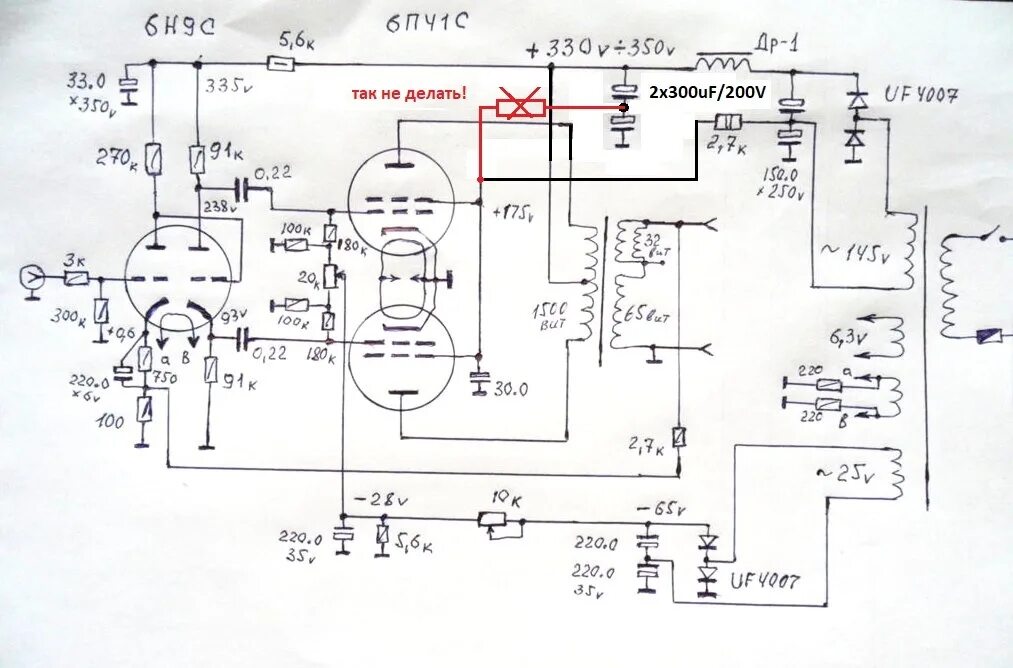 6Н9С
6П41С
5,6к
+330v÷350v
Др-1
33.0
×350v
335v
так не делать!
2x300uF/200V
UF4007
270к
91к
0,22
2,7к
150.0
×250v
238v
+175v
100к
180к
32
вит
3к
20к
~145v
300к
93v
1500
вит
65вит
+0,6
а
в
100к
6,3v
0,22
180к
220.0
×6v
750
91к
30.0
220
а
100
220
в
2,7к
~25v
-28v
10к
-65v
220.0
35v
5,6к
220.0
220.0
35v
UF4007